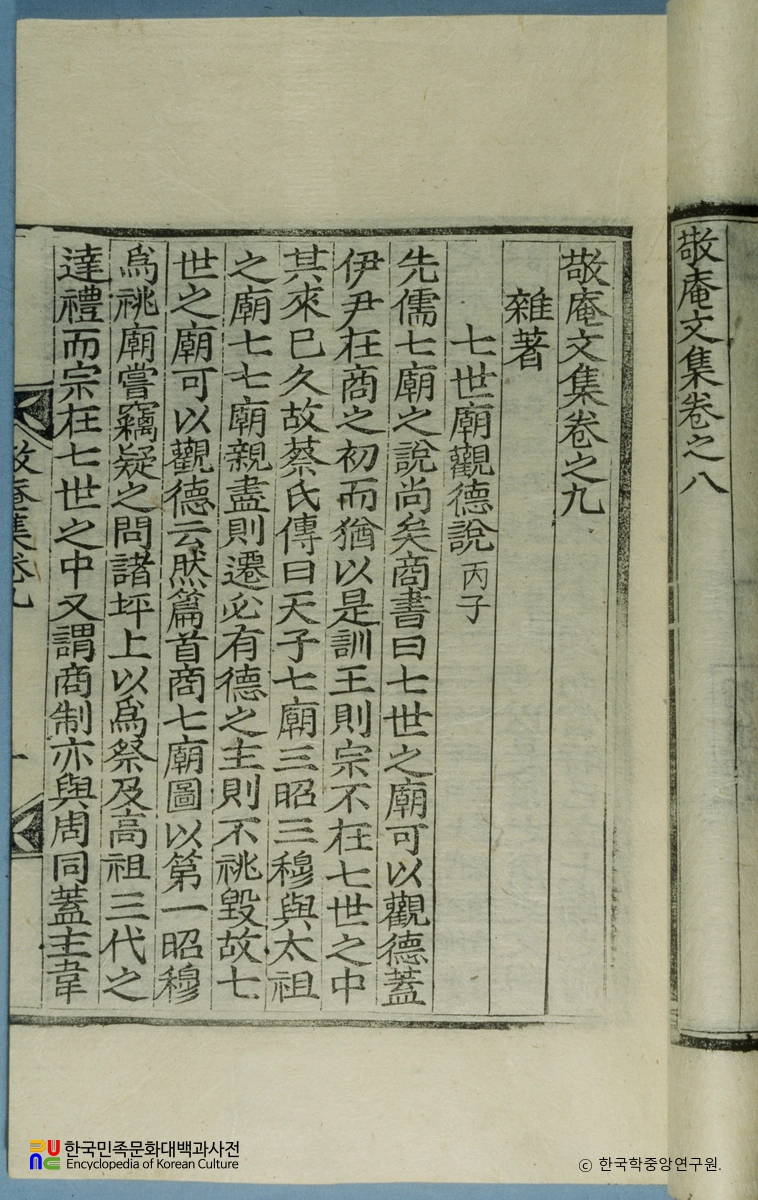 敬庵文集卷之八
敬庵文集卷之九
雜著
七世廟觀德說 丙子
先儒七廟之說尚矣商書曰七世之廟可以觀德蓋
伊尹在商之初而猶以是訓王則宗不在七世之中
其來已久故蔡氏傳曰天子七廟三昭三穆與太祖
之廟七七廟親盡則遷必有德之主則不祧毀故七
世之廟可以觀德云然篇首商七廟圖以第一昭穆
爲祧廟嘗竊疑之問諸坪上以爲祭及高祖三代之
達禮而宗在七世之中又謂商制亦與周同蓋主韋
敬庵集卷九
一
한국민족문화대백과사전
Encyclopedia of Korean Culture
ⓒ 한국학중앙연구원.